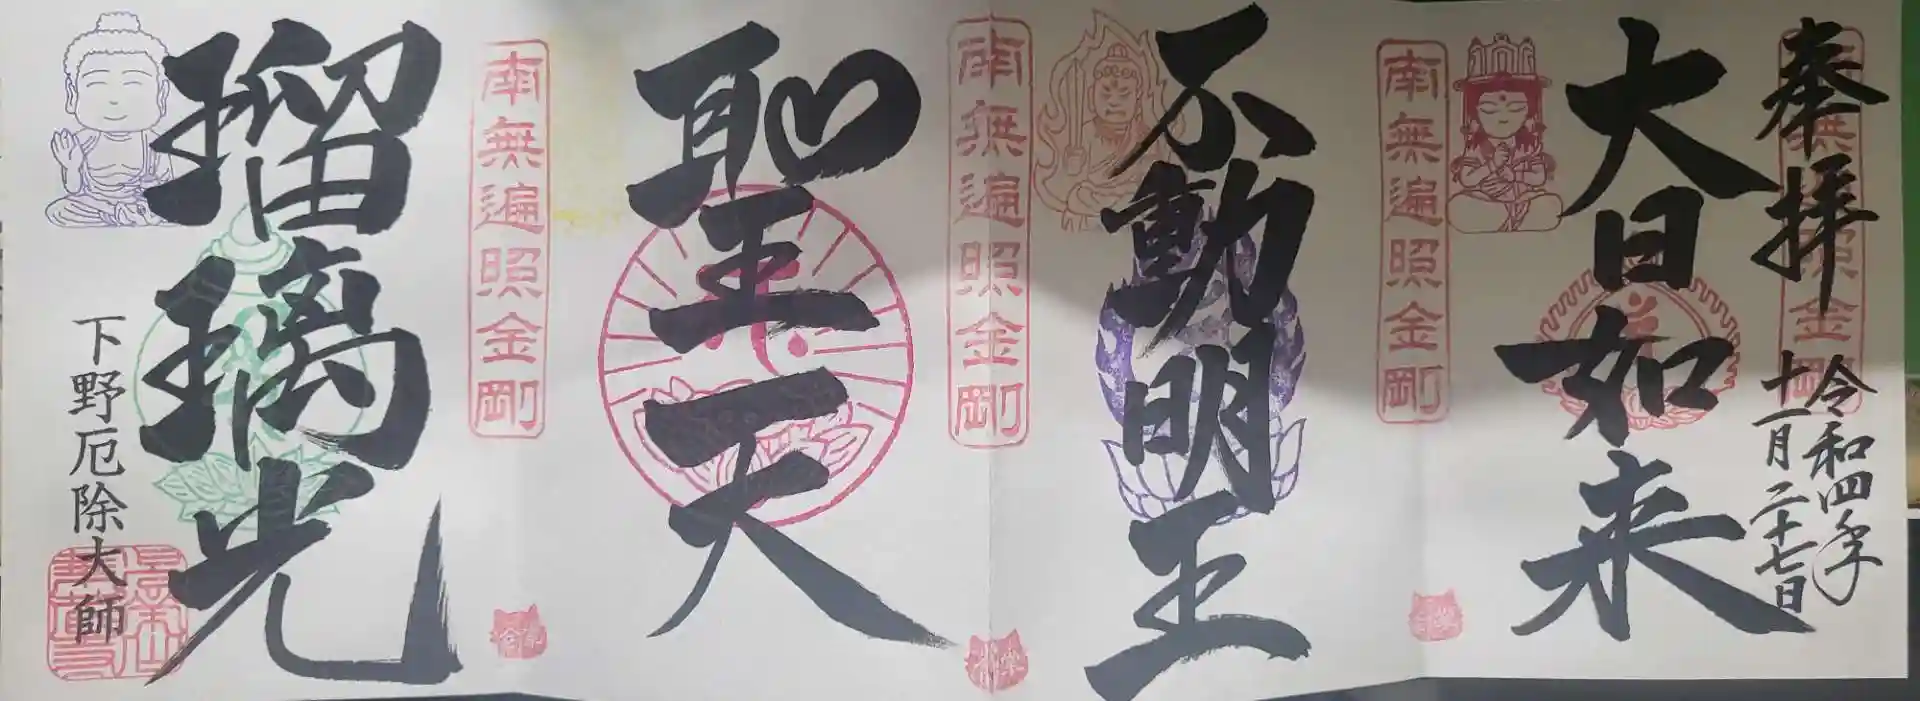 奉拝
令和四年
十一月二十七日
大日如来
南無遍照金剛
不動明王
南無遍照金剛
聖天
南無遍照金剛
瑠璃光
下野厄除大師